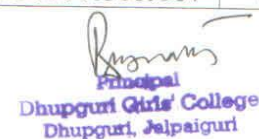 Principal
Dhupguri Girls' College
Dhupguri, Jalpaiguri